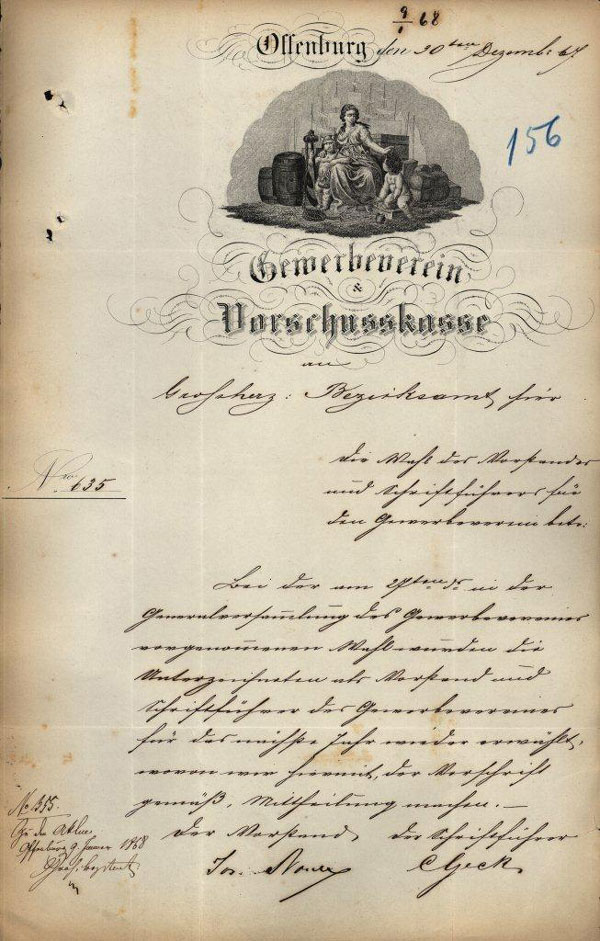 9/1 68
Offenburg den 30ten Dezember 67
156
Gewerbeverein
&
Vorschusskasse
an
Grosherz: Bezirksamt hier
Nro 635
Die Wahl des Vorstandes
und Schriftführers für
den Gewerbeverein betr:
Bei der am 29ten ds in der
Generalversammlung des Gewerbevereines
vorgenommenen Wahl wurden die
Unterzeichneten als Vorstand und
Schriftführer des Gewerbevereines
für das nächste Jahr wieder erwählt,
wovon wir hiermit, der Vorschrift
gemäß, Mittheilung machen. —
Der Vorstand, der Schriftführer
Jos. C Geck
No 355.
Zu den Akten.
Offenburg 9. Januar 1868